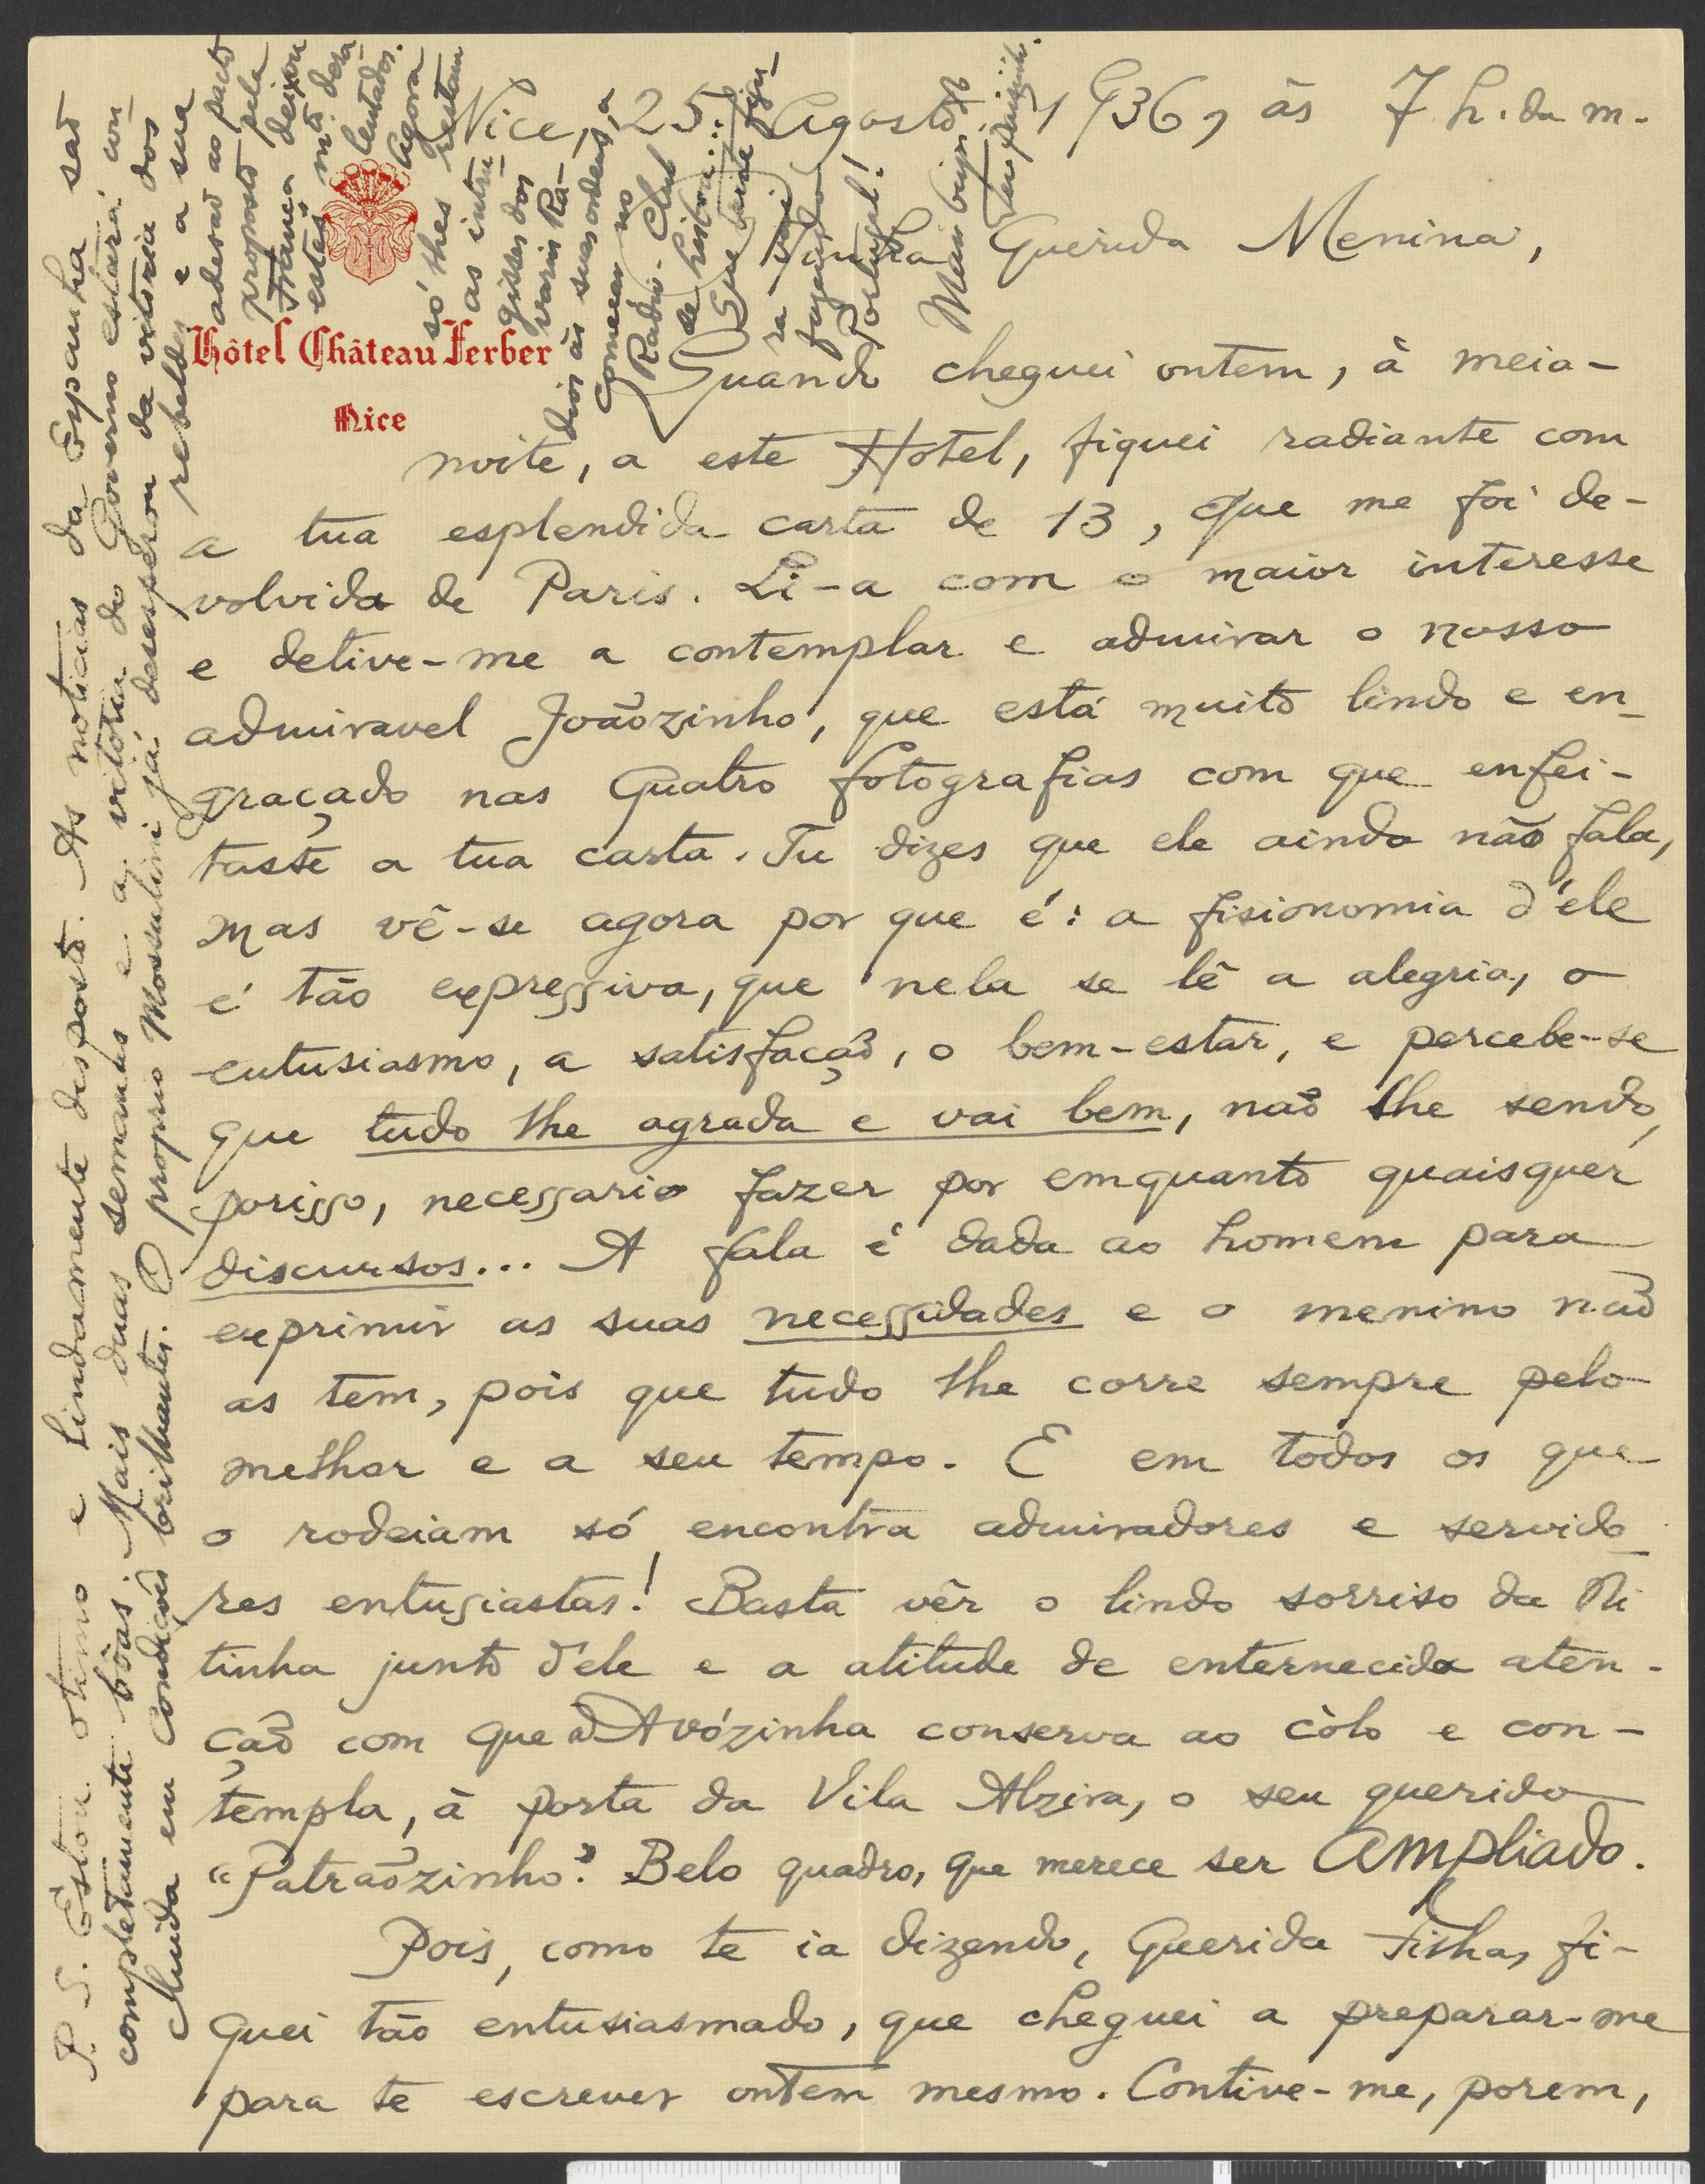 Nice, 25. Agosto. 1936, às 7 h. da m.
Hôtel Château Ferber
Nice
Minha Querida Menina,
Quando cheguei ontem, à meia-
noite, a este Hotel, fiquei radiante com
a tua esplendida carta de 13, que me foi de-
volvida de Paris. Li-a com o maior interesse
e detive-me a contemplar e admirar o nosso
admiravel Joãozinho, que está muito lindo e en-
graçado nas quatro fotografias com que enfei-
taste a tua carta. Tu dizes que ele ainda não fala,
mas vê-se agora por que é: a fisionomia d'éle
é tão expressiva, que nela se lê a alegria, o
entusiasmo, a satisfação, o bem-estar, e percebe-se
que tudo lhe agrada e vai bem, não lhe sendo,
porisso, necessario fazer por emquanto quaisquer
discursos... A fala é dada ao homem para
exprimir as suas necessidades e o menino não
as tem, pois que tudo lhe corre sempre pelo
melhor e a seu tempo. E em todos os que
o rodeiam só encontra admiradores e servido-
res entusiastas! Basta vêr o lindo sorriso da Ni
tinha junto d'ele e a atitude de enternecida aten-
ção com que a Avózinha conserva ao còlo e con-
templa, à porta da Vila Alzira, o seu querido
"Patrãozinho". Belo quadro, que merece ser Ampliado.
Pois, como te ia dizendo, Querida Filha, fi-
quei tão entusiasmado, que cheguei a preparar-me
para te escrever ontem mesmo. Contive-me, porem,
P. S. Estou otimo e lindamente disposto. As noticias da Espanha são
completamente bôas. Mais duas semanas e a vitória do Governo estará con-
seguida em condições brilhantes. O proprio Mossulini já desesperou da vitória dos
rebeldes e a sua
adesão ao pacto
proposto pela
França deixou
estes mto desa-
lentados.
Agora
só lhes restam
as intru-
gisses dos
varios Ra-
dios às suas ordens, a
começar no
Radio-Club
de Lisboa...
Que triste figu-
ra vai
fazendo
Portugal!
Mais beijos do
Teu paisinho.